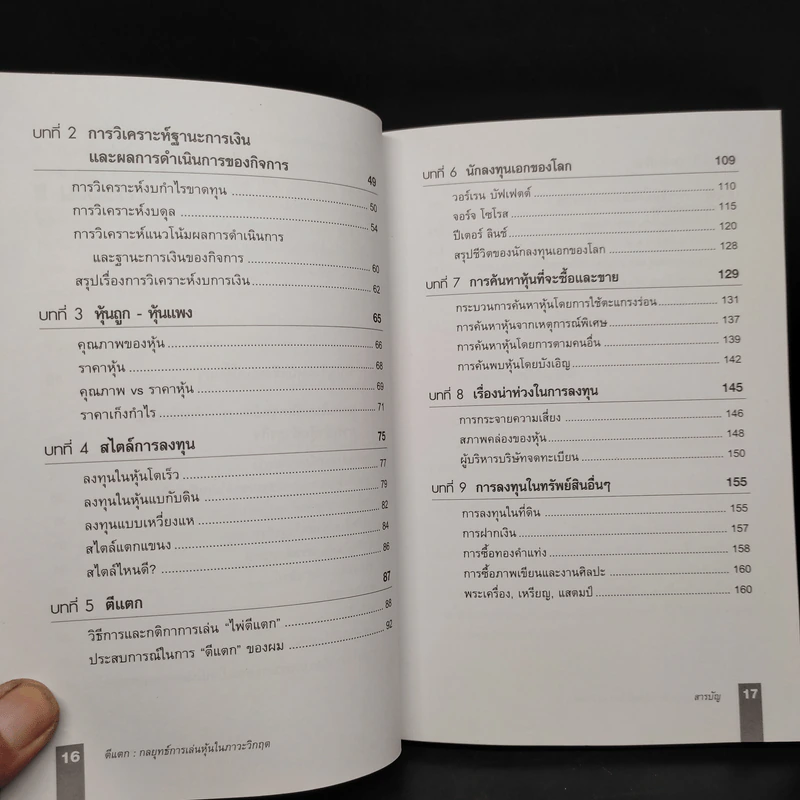 บทที่ 2 การวิเคราะห์ฐานะการเงิน
และผลการดำเนินการของกิจการ 49
การวิเคราะห์งบกำไรขาดทุน 50
การวิเคราะห์งบดุล 54
การวิเคราะห์แนวโน้มผลการดำเนินการ
และฐานะการเงินของกิจการ 60
สรุปเรื่องการวิเคราะห์งบการเงิน 62
บทที่ 3 หุ้นถูก - หุ้นแพง 65
คุณภาพของหุ้น 66
ราคาหุ้น 68
คุณภาพ vs ราคาหุ้น 69
ราคาเก็งกำไร 71
บทที่ 4 สไตล์การลงทุน 75
ลงทุนในหุ้นโตเร็ว 77
ลงทุนในหุ้นแบกับดิน 79
ลงทุนแบบเหวี่ยงแห 82
สไตล์แตกแขนง 84
สไตล์ไหนดี? 86
บทที่ 5 ตีแตก 87
วิธีการและกติกาการเล่น “ไพ่ตีแตก” 88
ประสบการณ์ในการ “ตีแตก” ของผม 92
16 ตีแตก : กลยุทธ์การเล่นหุ้นในภาวะวิกฤต
บทที่ 6 นักลงทุนเอกของโลก 109
วอร์เรน บัฟเฟตต์ 110
จอร์จ โซโรส 115
ปีเตอร์ ลินช์ 120
สรุปชีวิตของนักลงทุนเอกของโลก 128
บทที่ 7 การค้นหาหุ้นที่จะซื้อและขาย 129
กระบวนการค้นหาหุ้นโดยการใช้ตะแกรงร่อน 131
การค้นหาหุ้นจากเหตุการณ์พิเศษ 137
การค้นหาหุ้นโดยการตามคนอื่น 139
การค้นพบหุ้นโดยบังเอิญ 142
บทที่ 8 เรื่องน่าห่วงในการลงทุน 145
การกระจายความเสี่ยง 146
สภาพคล่องของหุ้น 148
ผู้บริหารบริษัทจดทะเบียน 150
บทที่ 9 การลงทุนในทรัพย์สินอื่นๆ 155
การลงทุนในที่ดิน 155
การฝากเงิน 157
การซื้อทองคำแท่ง 158
การซื้อภาพเขียนและงานศิลปะ 160
พระเครื่อง, เหรียญ, แสตมป์ 160
สารบัญ 17